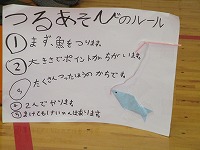 つるあそびのルール
① まず、魚をつります。
② 大きさでポイントがちがいます。
③ たくさんつったほうのかちです。
④ 2人でやります
⑤ まけてもけいひんはあります